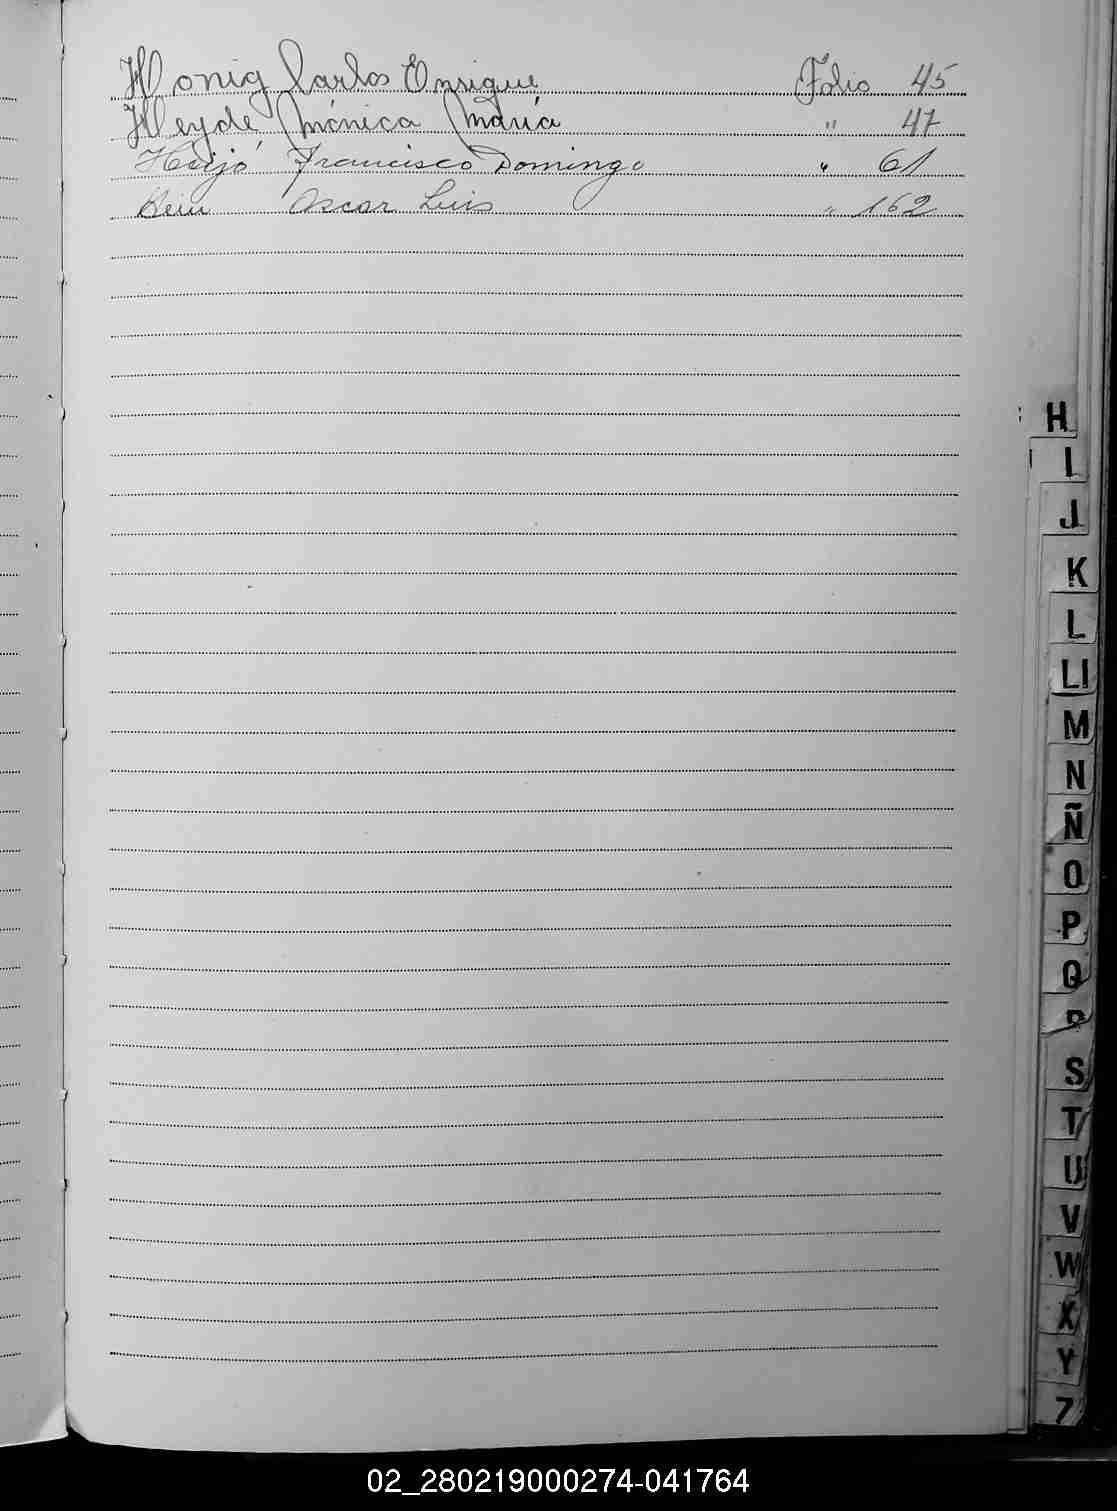 Honig Carlos Enrique Folio 45
Heyde Mónica María " 47
Francisco Domingo " 61
Hein Oscar Luis " 162
H
I
J
K
L
Ll
M
N
Ñ
O
P
Q
R
S
T
U
V
W
X
Y
Z
02_280219000274-041764